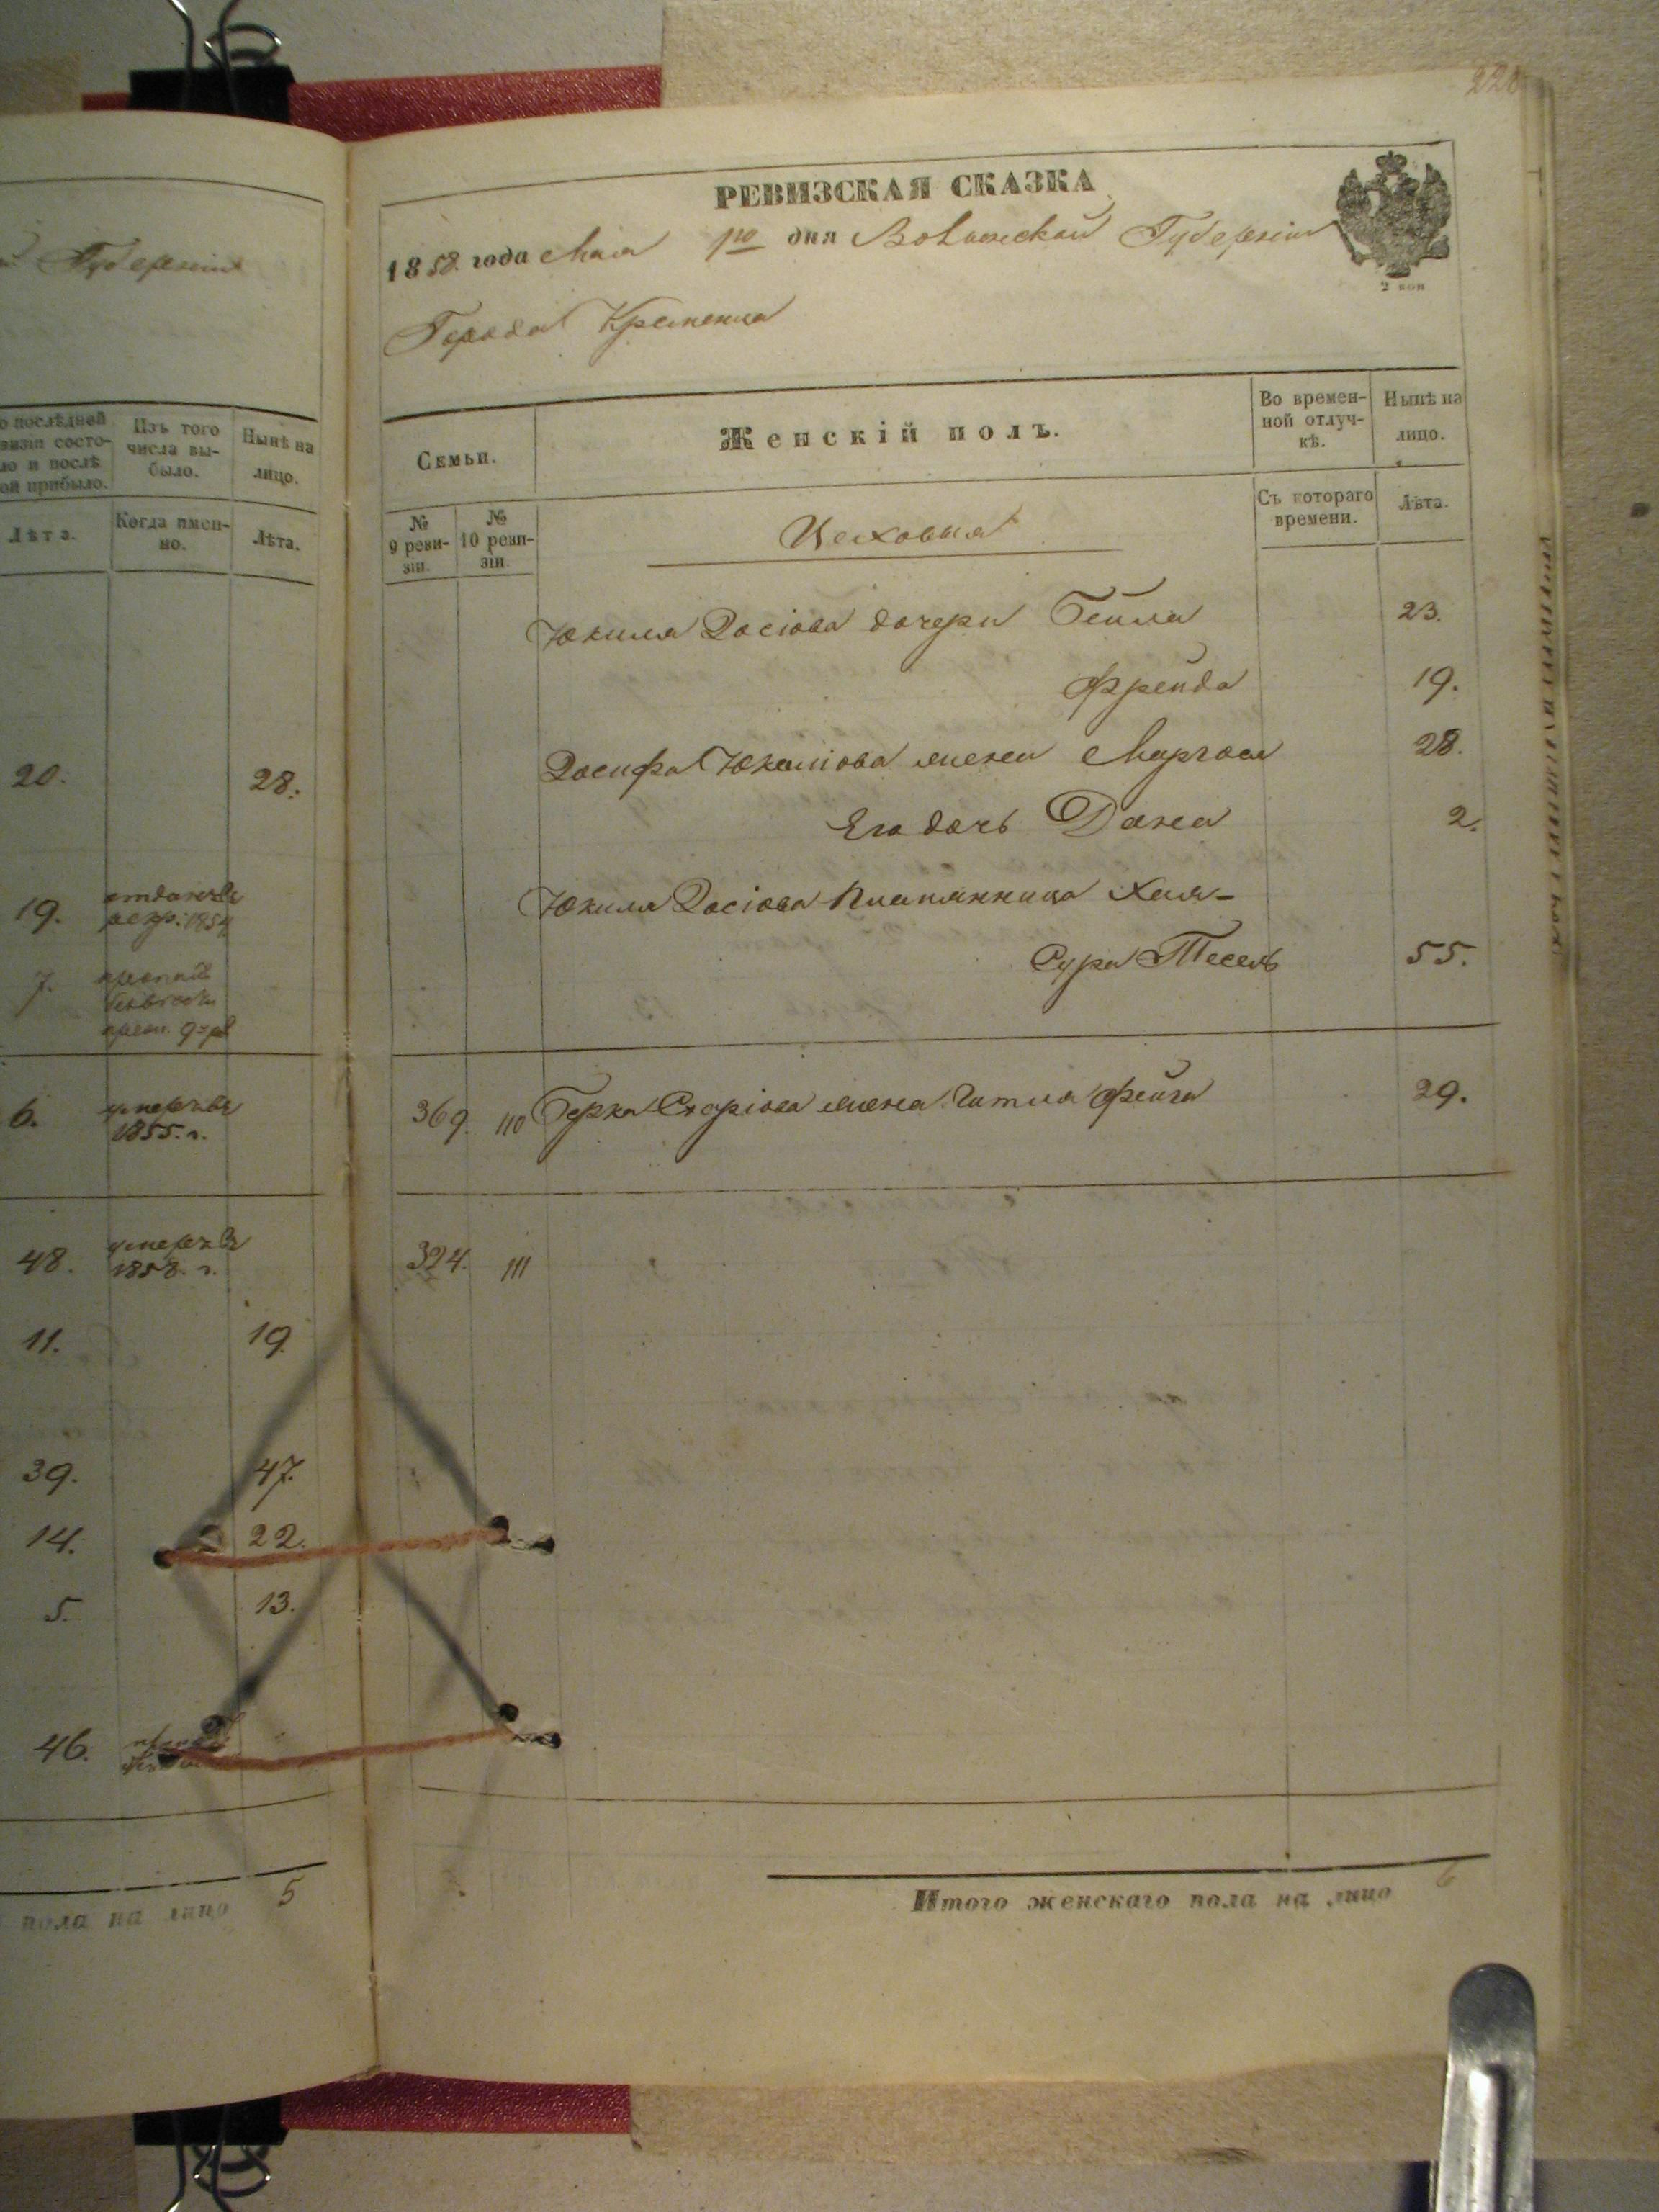 220
Губерніи
о послѣдней
визіи состо-
ло и послѣ
ой прибыло.
Изъ того
числа вы-
было.
Нынѣ на
лицо.
Лѣта.
Когда имен-
но.
Лѣта.
20. 28.
19. 1854
7.
6. умеръ въ
1855. г.
48. умеръ въ
1858. г.
11. 19.
39. 47.
14. 22.
5. 13.
46.
пола на лицо 5
РЕВИЗСКАЯ СКАЗКА
1858. года Мая 1го дня Волынской Губерніи
2 коп
Города Кременца
Семьи.
Женскій полъ.
Во времен-
ной отлуч-
кѣ.
Нынѣ на
лицо.
№
9 реви-
зіи.
№
10 реви-
зіи.
Цеховыя
Съ котораго
времени.
Лѣта.
Юкиля Іосіова дочери Бейла 23.
Фрейда 19.
Іосифа Юкиліова жена Маргося 28.
Его дочь Дана 2.
Юкиля Іосіова племянница Хая-
Сура Тесель 55.
369. 110 Берка жена Гитля Фейга 29.
324. 111
Итого женскаго пола на лицо 6